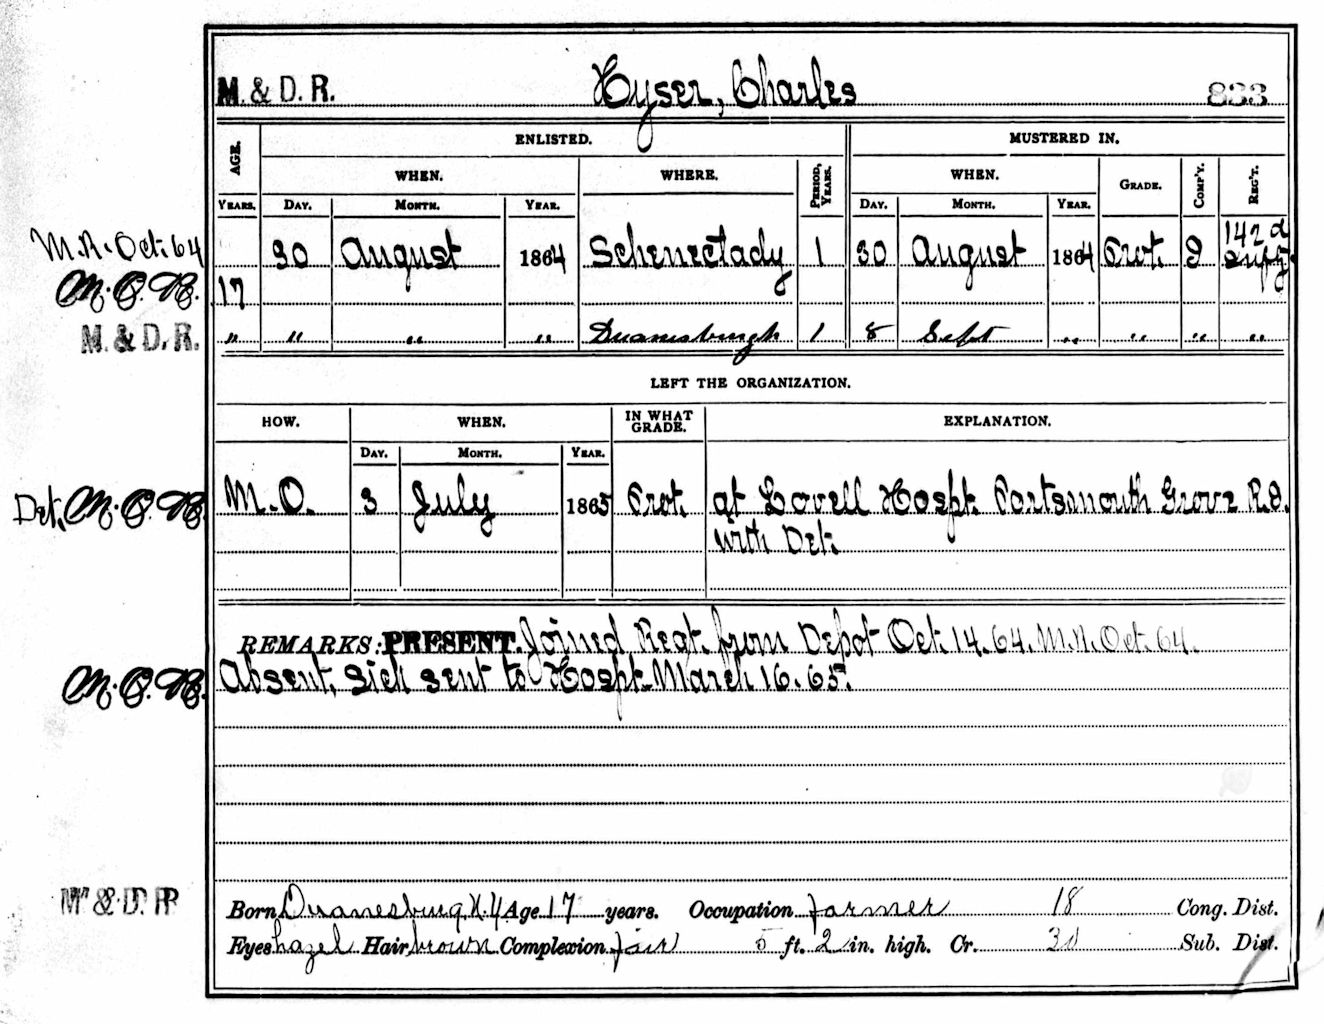 M. & D. R. Hyser, Charles 833
AGE. ENLISTED. MUSTERED IN.
WHEN. WHERE. PERIOD, YEARS. WHEN. GRADE. COMP'Y. REG'T.
YEARS. DAY. MONTH. YEAR. DAY. MONTH. YEAR.
M.R. Oct. 64 30 August 1864 Schenectady 1 30 August 1864 Pvt. 142d
Infy.
M.O.R. 17
M. & D. R. " " " " Duanesburgh 1 8 Sept " " " "
LEFT THE ORGANIZATION.
HOW. WHEN. IN WHAT GRADE. EXPLANATION.
DAY. MONTH. YEAR.
Det. M.O.R. M.O. 3 July 1865 Pvt. at Lovell Hospt. Portsmouth Grove R.I.
with Det.
REMARKS: PRESENT. Joined Regt. from Depot Oct. 14. 64. M.R. Oct. 64.
M.O.R. Absent, sick sent to Hospt. March 16. 65.
M. & D. R. Born Duanesburg N.Y Age 17 years. Occupation farmer 18 Cong. Dist.
Eyes hazel Hair brown Complexion fair 5 ft. 2 in. high. Cr. Sub. Dist.